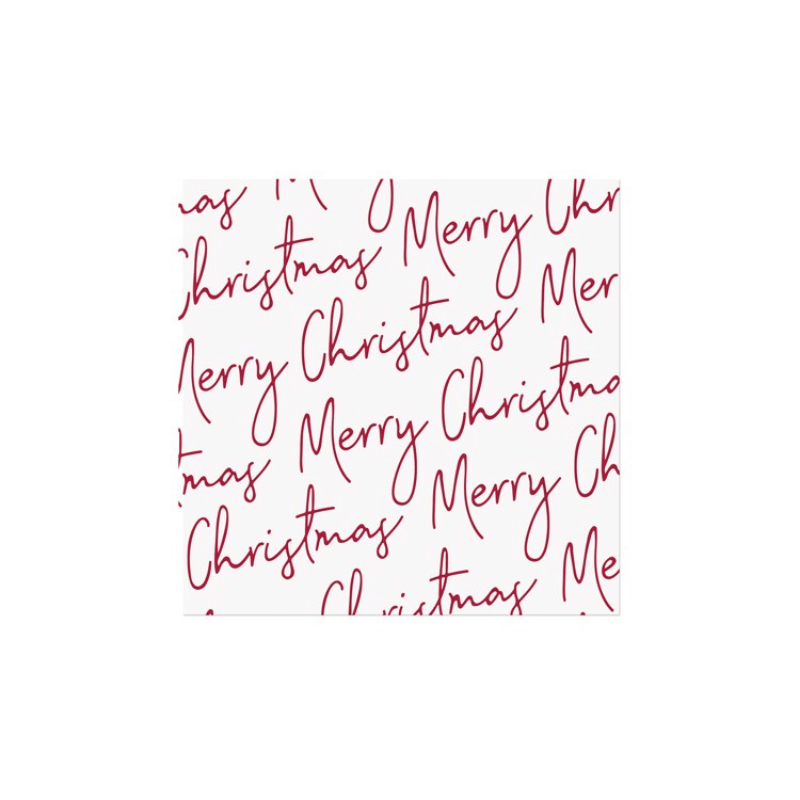 mas
Christmas Merry Chr
Merry Christmas Mer
tmas Merry Christma
Christmas Merry Ch
Christmas Me